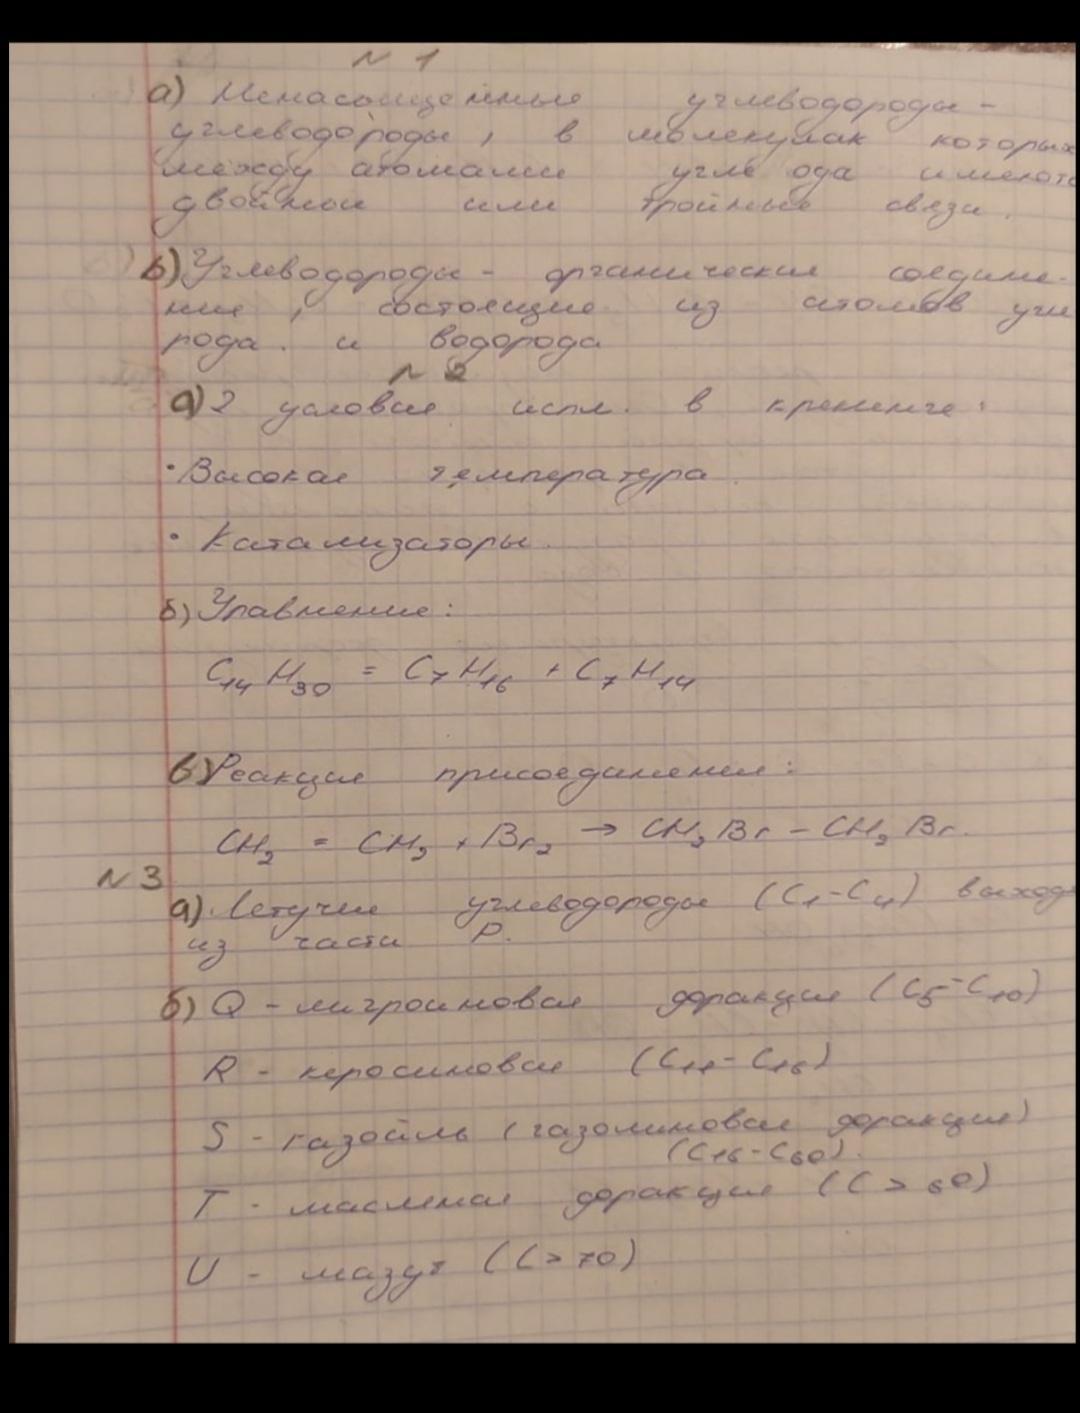 N 1
а) Ненасыщенные углеводороды -
углеводороды, в молекулах которых
между атомами углерода имеют
двойные или тройные связи.
b) Углеводороды - органические соедине-
ния, состоящие из атомов угле
рода и водорода
N 2
а) 2 условия исп. в крекинге:
• Высокая температура
• Катализаторы.
б) Уравнение:
C₁₄H₃₀ = C₇H₁₆ + C₇H₁₄
в) Реакция присоединения:
CH₂ = CH₂ + Br₂ → CH₂Br - CH₂Br.
N 3
а) Летучие углеводороды (C₁-C₄) выход
из части P.
б) Q - лигроиновая фракция (C₅-C₁₀)
R - керосиновая (C₁₁-C₁₆)
S - газойль (газолиновая фракция)
(C₁₆-C₆₀).
T - масляная фракция (C > 60)
U - мазут (C > 70)